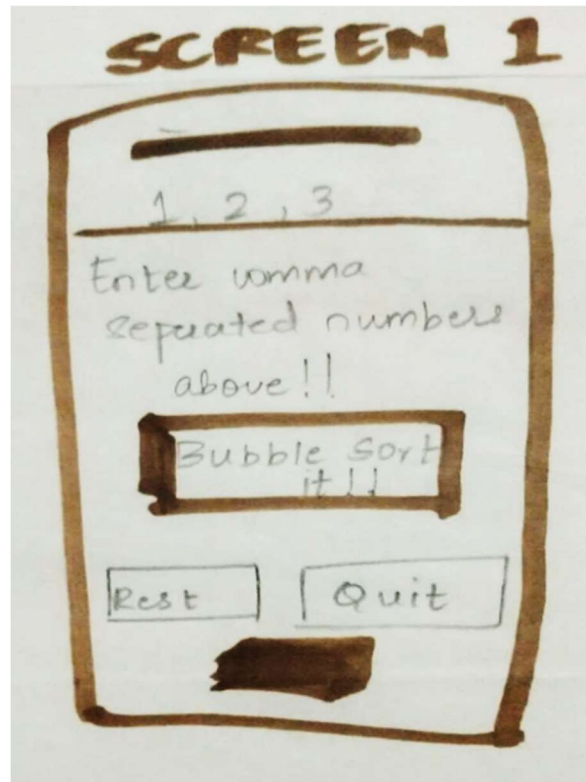 SCREEN 1
1, 2, 3
Enter comma
seperated numbers
above!!
Bubble Sort
it!!
Rest Quit